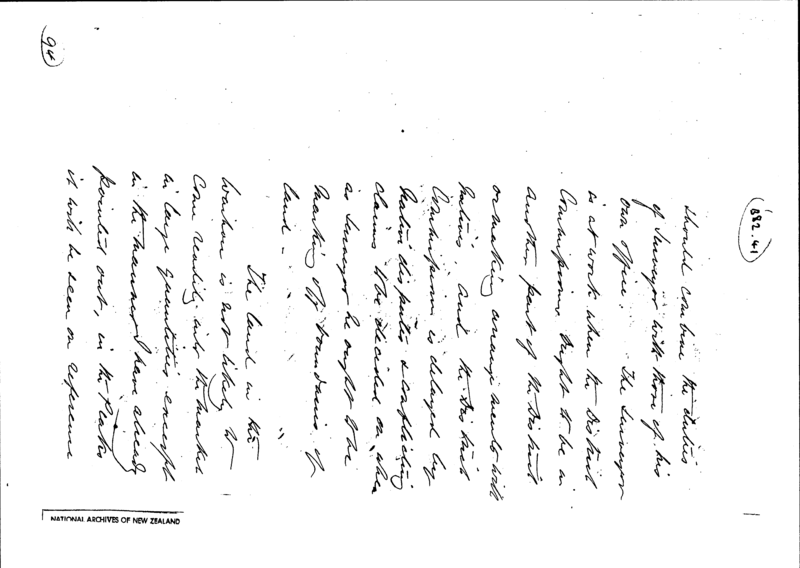 94
682.41
should combine the duties
of Surveyor with those of his
own office. The Surveyor
is at work when the District
Commissioner ought to be in
another part of the District
or making arrangements with
Natives. And the District
Commissioner is delayed by
Native disputes & conflicting
claims to be decided on when
as Surveyor he ought to be
marking off boundaries of
land.
The land in the
is not likely to
come readily into the market
in large quantities except
in the manner I have already
pointed out, in the
it will be seen on reference
NATIONAL ARCHIVES OF NEW ZEALAND